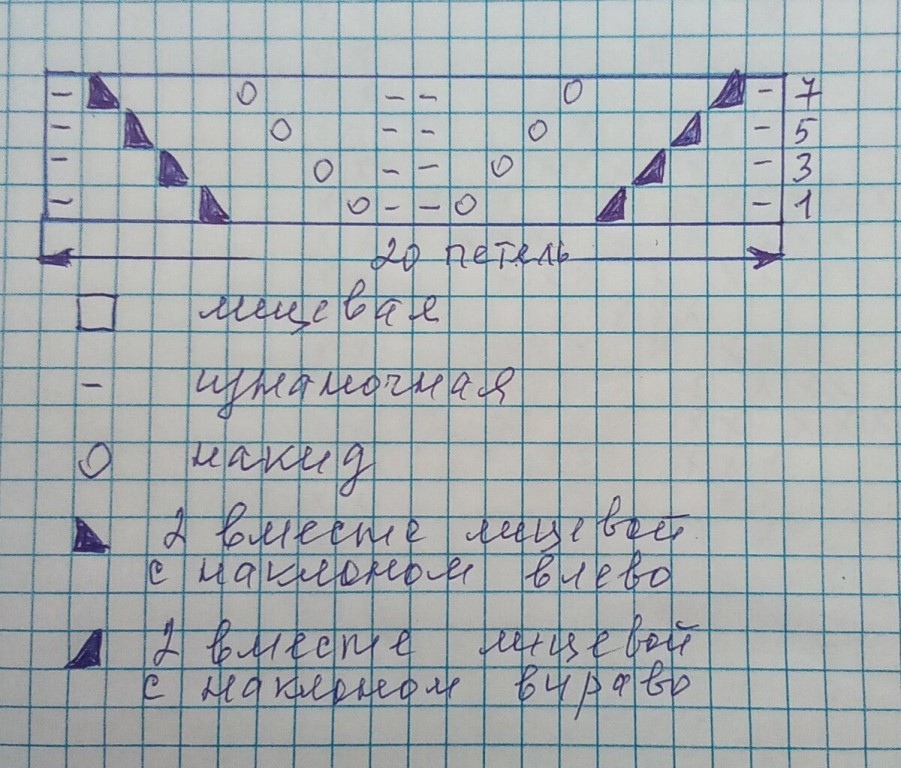 7
5
3
1
20 петель
лицевая
изнаночная
накид
2 вместе лицевой
с наклоном влево
2 вместе лицевой
с наклоном вправо